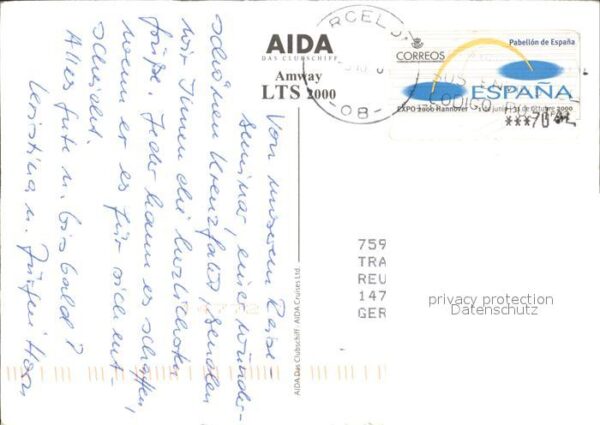 AIDA
DAS CLUBSCHIFF
Amway
LTS 2000
Von unserem Reise-
seminar, eine wunder-
schönen Kreuzfahrt, senden
wir Ihnen die herzlichsten
Grüße. Jeder kann es schaffen,
wenn er es für sich ent-
scheidet.
Alles Gute u. bis bald?
Kristina u. Jürgen Horn
AIDA Das Clubschiff AIDA Cruises Ltd.
RCELO
08
CORREOS
Pabellón de España
ESPAÑA
CODIGO
EXPO 2000 Hannover 1 de junio - 31 de octubre 2000
***70
759
TRA
REU
147
GER
privacy protection
Datenschutz